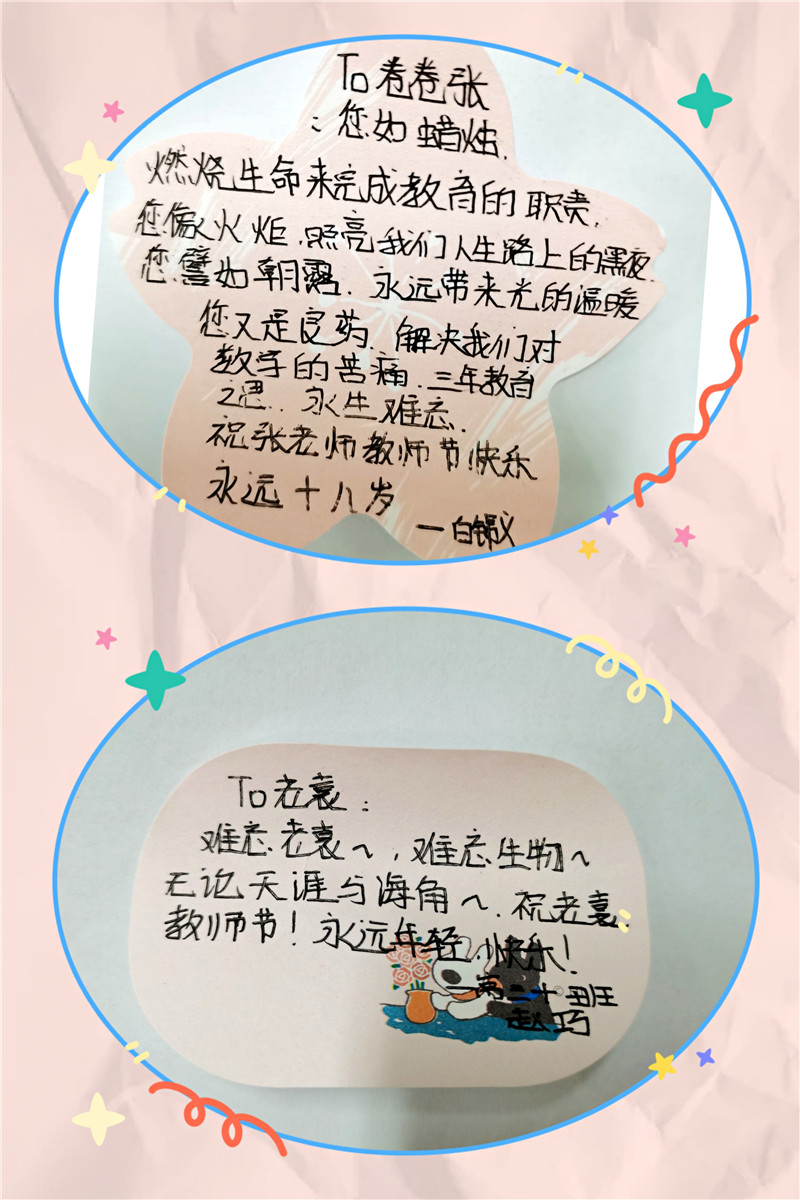 To卷卷张
：您如蜡烛.
燃烧生命来完成教育的职责.
您像火炬.照亮我们人生路上的黑夜.
您譬如朝露.永远带来光的温暖
您又是良药.解决我们对
数学的苦痛.三年教育
之恩..永生难忘.
祝张老师教师节快乐
永远十八岁
—白锦义
To老袁：
难忘老袁~,难忘生物~
无论天涯与海角~.祝老袁.
教师节!永远年轻.快乐!
—高二十班
赵巧